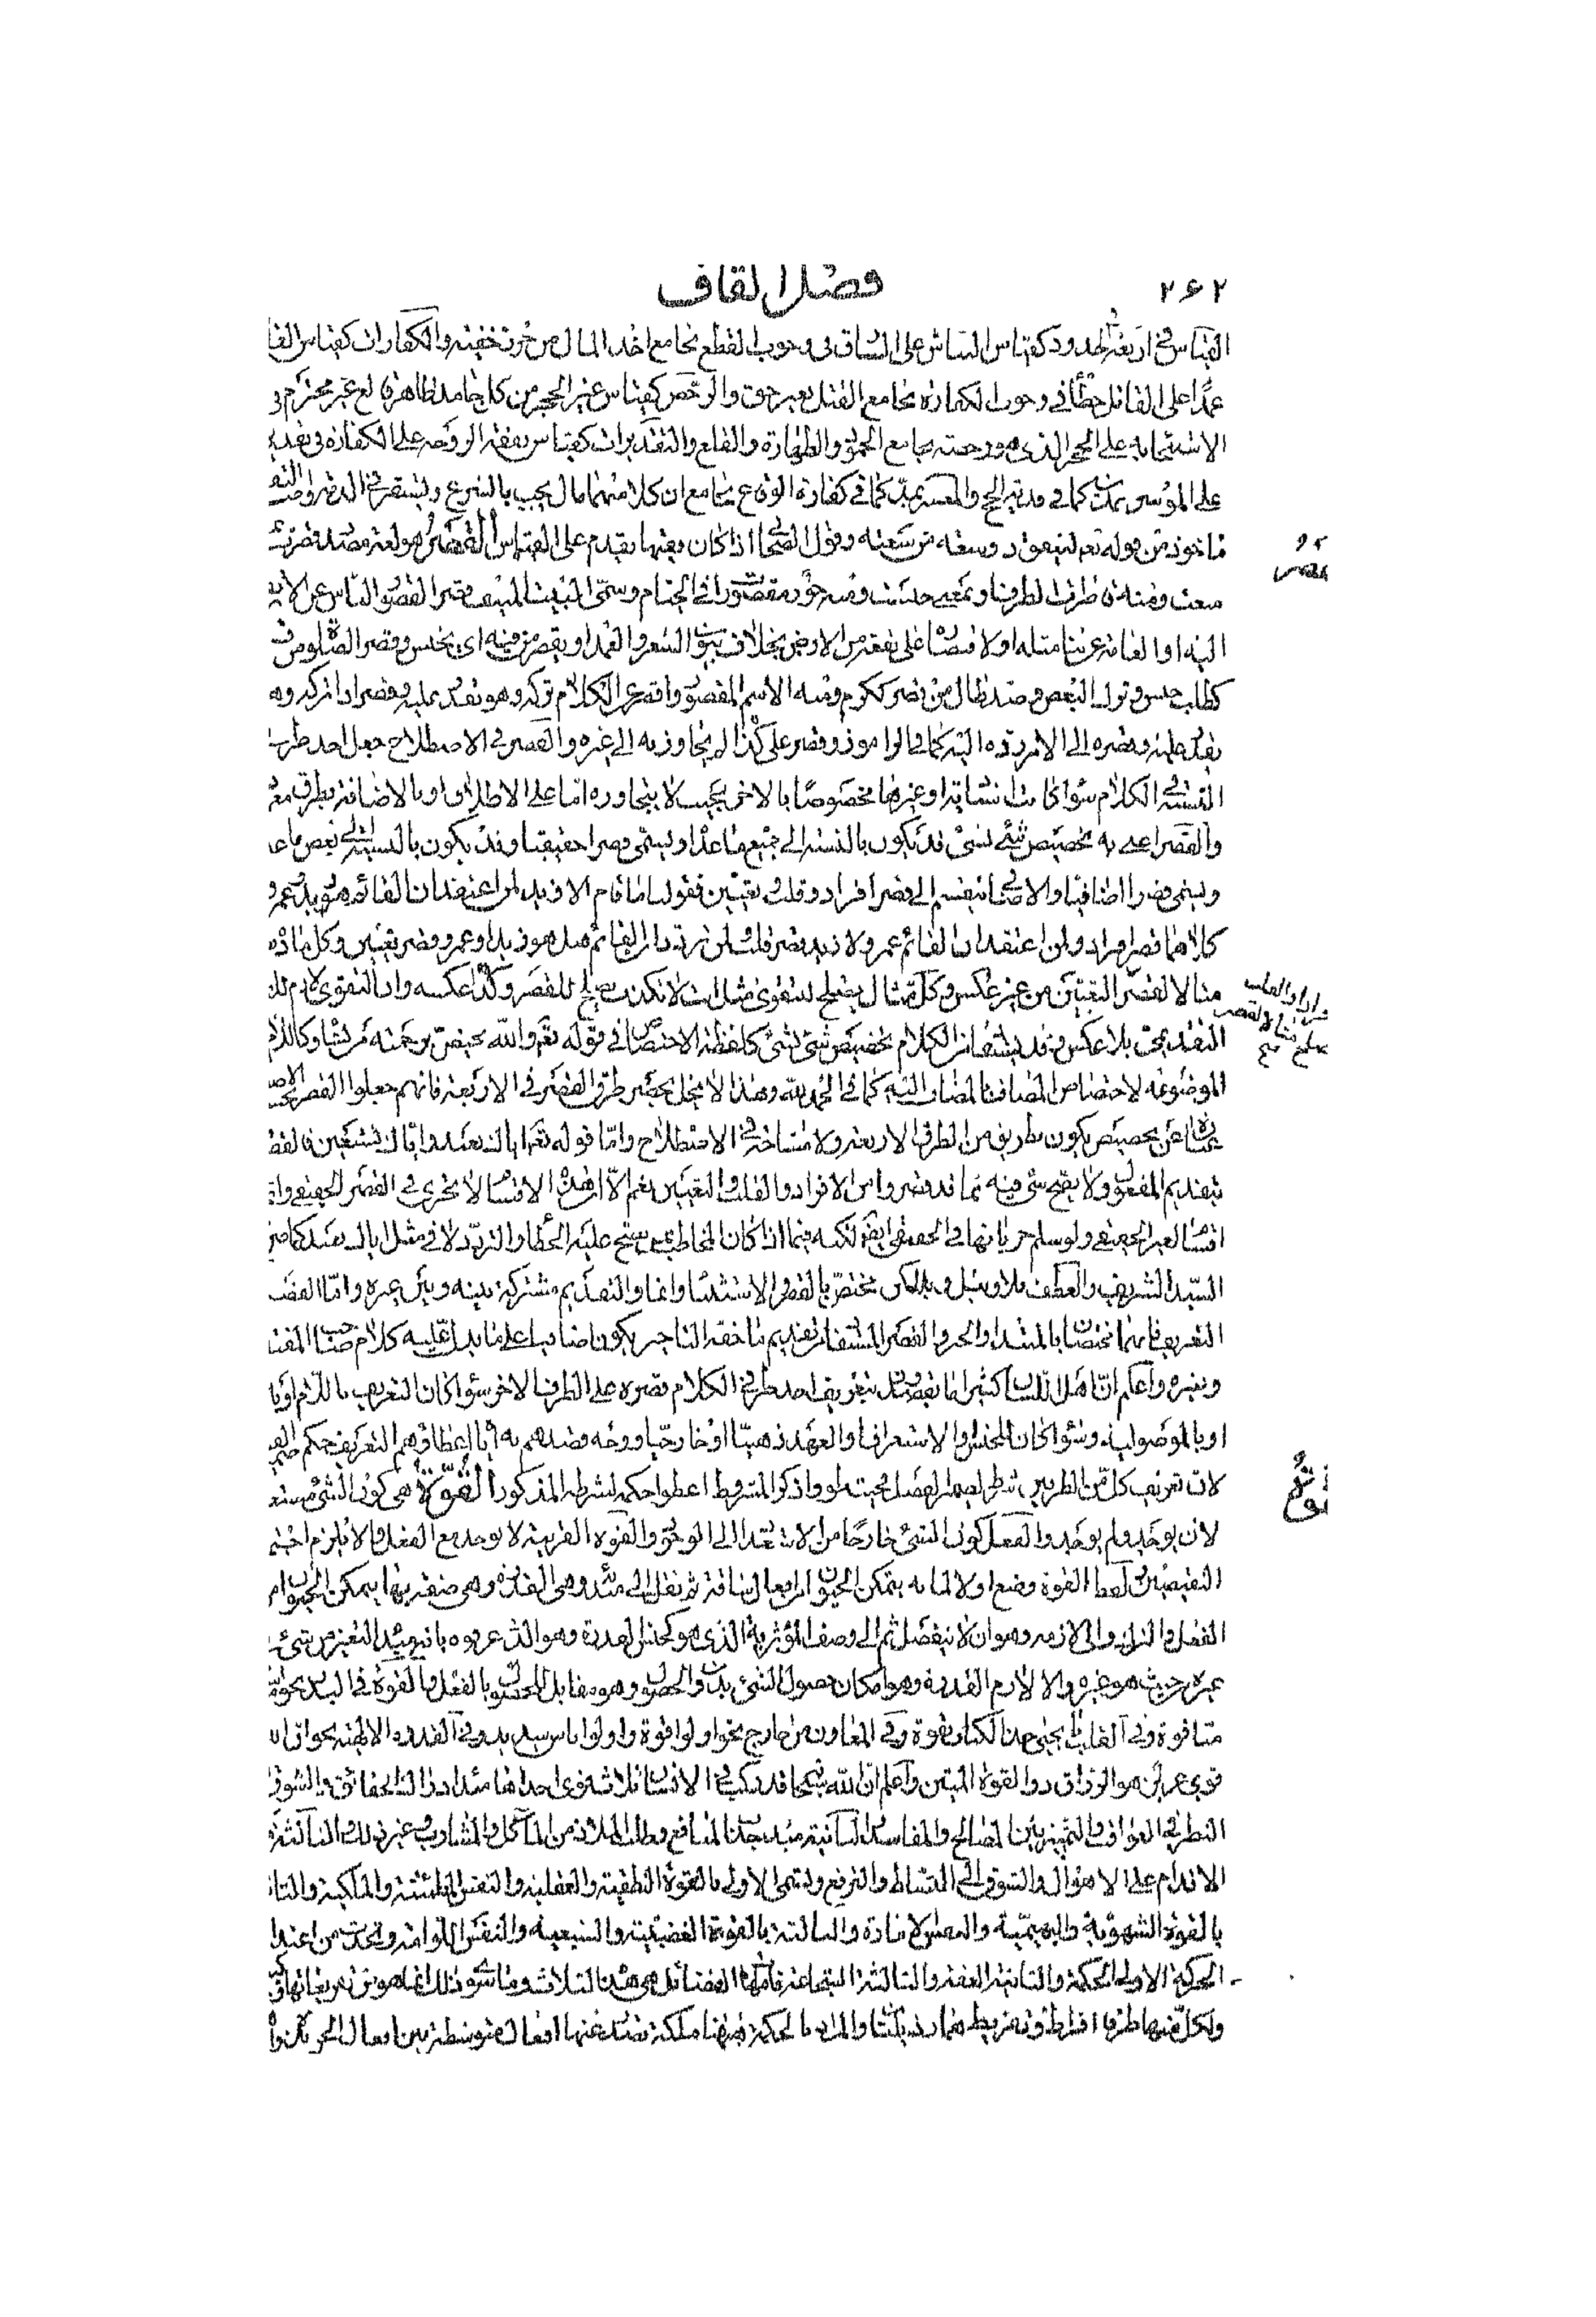 ۲۶۲ فصل القاف
القياس في اربعة الحدود كقياس النباش على السارق في وجوب القطع بجامع اخذ المال من حرز خفية والكفارات كقياس القا
عمدا على القاتل خطأ في وجوب الكفارة بجامع القتل بغير حق والرخص كقياس غير الحجر من كل جامد طاهر قالع غير محترم في
الاستنجاء به على الحجر الذي هو رخصة بجامع الجمود والطهارة والقلع والتقديرات كقياس نفقة الزوجة على الكفارة في تقد
على الموسر بمدين كما في فدية الحج والمعسر بمد كما في كفارة الوقاع بجامع ان كلا منهما مال يجب بالشرع ويستقر في الذمة
مأخوذ من قوله تعم لينفق ذو سعة من سعته وقول الصحابي اذا كان فقيها يقدم على القياس القصر هو لغة مصدر قصرت
منعت ومنه قاصرات الطرف وبمعنى حبست ومنه حور مقصورات في الخيام وسمى البيت المنيف قصرا لقصور الناس عن الار
اليه او العامة عن بناء مثله او لاقتصاره على بقعة من الارض بخلاف بيوت الشعر والعمد او يقصر من فيه اي يحبس وقصر الصلوة من
كطلب حبس وقول البعض وضد طال من قصر ككرم ومنه الاسم المقصور واقصر عن الكلام تركه وهو يقدر عليه وقصر اذا تركه وهو
يقدر عليه وقصره الى الامر رده اليه كما قالوا موز وقصر على كذا لم يتجاوز به الى غيره والقصر في الاصطلاح جعل احد طرفي
النسبة في الكلام سواء كانت اسنادية او غيرها مخصوصا بالاخر بحيث لا يتجاوزه اما على الاطلاق او بالاضافة بطرق معه
والقصر اعني به تخصيص شيء بشيء قد يكون بالنسبة الى جميع ما عداه ويسمى قصرا حقيقيا وقد يكون بالنسبة الى بعض ما عد
ويسمى قصرا اضافيا والاضافي ينقسم الى قصر افراد وقلب وتعيين فقولنا ما قام الا زيد لمن اعتقد ان القائم هو زيد وعمرو
كلاهما قصر افراد ولمن اعتقد ان القائم عمرو لا زيد قصر قلب ولمن تردد ان القائم هل هو زيد او عمرو قصر تعيين وكل مادة
مثالا لقصر التعيين من غير عكس وكل مثال يصلح للتقوى مثل انت لا تكذب يصلح للقصر وكذا عكسه واما التقوى لازم لل
التقديم بلا عكس وقد يستفاد من الكلام تخصيص شيء بشيء كلفظة الاختصاص في قوله تعم والله يختص برحمته من يشاء وكاللام
الموضوعة لاختصاص المضاف بالمضاف اليه كما في الحمد لله وهذا لا يخل بحصر طرق القصر في الاربعة فانهم جعلوا القصر بحسب الاصط
عبارة عن تخصيص يكون بطريق من الطرق الاربعة ولا مشاحة في الاصطلاح واما قوله تعم اياك نعبد واياك نستعين فالقصر
بتقديم المفعول ولا يصح شيء فيه مما قد قصروا من الافراد والقلب والتعيين نعم الا ان هذه الاقسام لا تجري في القصر الحقيقي وانما
اقسام لغير الحقيقي ولو سلم جريانها في الحقيقي ايضا لكنه فيما اذا كان المخاطب ممن يصح عليه الخطا والتردد لا في مثل اياك نعبد كما صر
السيد الشريف والعطف بلا وبل ولكن مختص بالقصر والاستثناء وانما والتقديم مشتركة بينه وبين غيره واما الفصل
التعريف فانهما مختصان بالمبتدا والخبر والقصر المستفاد من تقديم ما حقه التاخير يكون اضافيا على ما يدل عليه كلام صاحب المفتا
وغيره واعلم ان اهل اللسان كثيرا ما يقصدون بتعريف احد طرفي الكلام قصره على الطرف الاخر سواء كان التعريف باللام او با
او بالموصولية وسواء كان للجنس والاستغراق والعهد ذهنيا او خارجيا ووجه قصدهم به اياه اعطاؤهم التعريف حكم ضمير الف
لان تعريف كل من الطرفين شرط لضمير الفصل فحيث لو واذكر المشروط اعطوا حكمه لشرطه المذكور القوة هي كون الشيء مستعد
لان يوجد ولم يوجد والفعل كون الشيء خارجا من الاستعداد الى الوجود والقوة القريبة لا توجد مع الفعل والا يلزم اجتم
النقيضين لفظ القوة وضع اولا لما به يتمكن الحيوان من افعال شاقة ثم نقل الى مبدئه وهي القدرة وهي صفة بها يتمكن الحيوان من
الفعل والترك والى لازمه وهو ان لا ينفعل ثم الى وصف المؤثرية الذي هو كجنس القدرة وهو الذي عرفوه بانه مبدأ التغير من شيء
غيره من حيث هو غيره والى لازم القدرة وهو امكان حصول الشيء بدون الحصول وهو مقابل الحصول بالفعل والقوة في البدن نحو اشد
منا قوة وفي القلب يا يحيى خذ الكتاب بقوة وفي المعاون من خارج نحو اولوا قوة واولوا باس شديد وفي القدرة الالهية نحو ان الله
قوي عزيز هو الرزاق ذو القوة المتين واعلم ان الله سبحانه قد ركب في الانسان ثلاث قوى احداها مبدأ ادراك الحقائق والشوق
النظر في العواقب والتمييز بين المصالح والمفاسد الثانية مبدا جذب المنافع وطلب الملاذ من المآكل والمشارب وغير ذلك الثالثة
الاقدام على الاهوال والشوق الى التسلط والترفع وتسمى الاولى بالقوة النطقية والعقلية والنفس المطمئنة والملكية والثانية
بالقوة الشهوية والبهيمية والنفس الامارة والثالثة بالقوة الغضبية والسبعية والنفس اللوامة ويحدث من اعتدا
الحركة الاولى الحكمة والثانية العفة والثالثة الشجاعة فامهات الفضائل هي هذه الثلاث وما سوى ذلك انما هو من تفريعاتها
ولكل منها طرفا افراط وتفريط هما رذيلتان والمراد بالحكمة ههنا ملكة تصدر عنها افعال متوسطة بين افعال الجربزة